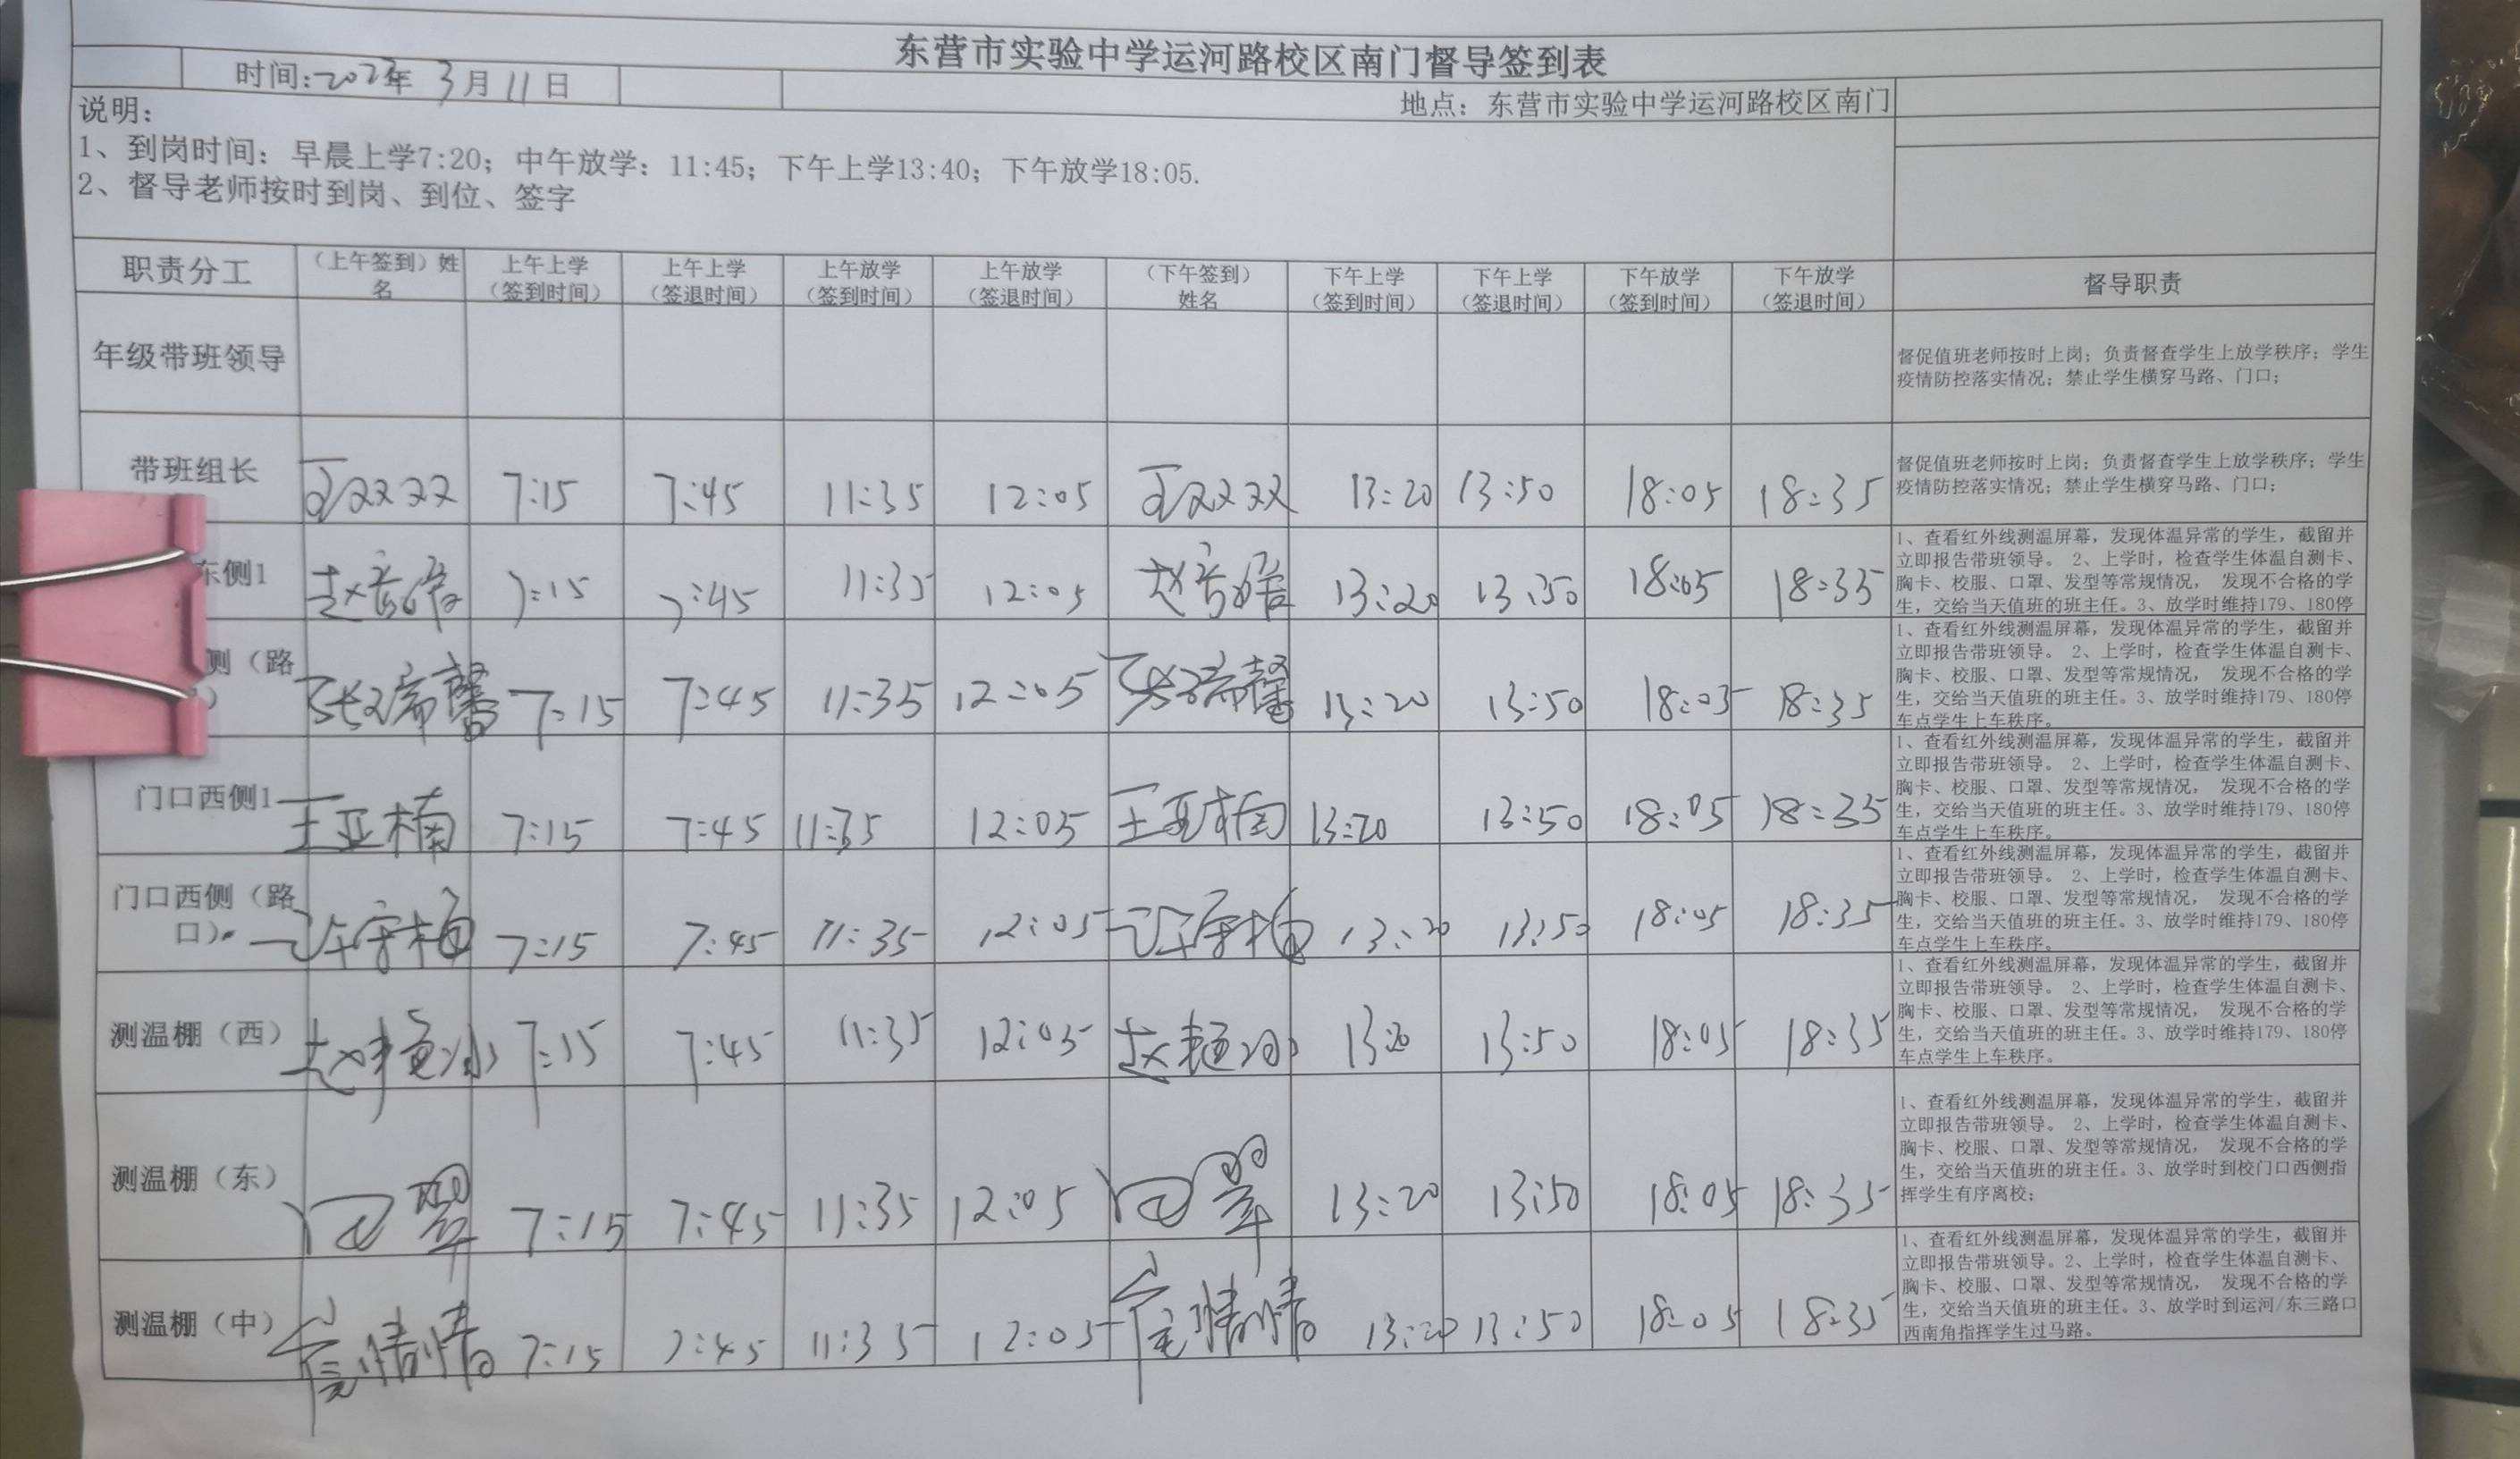 东营市实验中学运河路校区南门督导签到表
时间: 3月11日
地点：东营市实验中学运河路校区南门
说明：
1、到岗时间：早晨上学7:20；中午放学：11:45；下午上学13:40；下午放学18:05.
2、督导老师按时到岗、到位、签字
职责分工 （上午签到）姓名 上午上学（签到时间） 上午上学（签退时间） 上午放学（签到时间） 上午放学（签退时间） （下午签到）姓名 下午上学（签到时间） 下午上学（签退时间） 下午放学（签到时间） 下午放学（签退时间） 督导职责
年级带班领导
督促值班老师按时上岗；负责督查学生上放学秩序；学生
疫情防控落实情况；禁止学生横穿马路、门口；
带班组长 7:15 7:45 11:35 12:05 13:20 13:50 18:05 18:35
督促值班老师按时上岗；负责督查学生上放学秩序；学生
疫情防控落实情况；禁止学生横穿马路、门口；
东侧1 7:15 7:45 11:35 12:05 13:20 13:50 18:05 18:35
1、查看红外线测温屏幕，发现体温异常的学生，截留并
立即报告带班领导。 2、上学时，检查学生体温自测卡、
胸卡、校服、口罩、发型等常规情况， 发现不合格的学
生，交给当天值班的班主任。3、放学时维持179、180停
侧（路
） 张瑞馨 7:15 7:45 11:35 12:05 张瑞馨 13:20 13:50 18:05 18:35
1、查看红外线测温屏幕，发现体温异常的学生，截留并
立即报告带班领导。 2、上学时，检查学生体温自测卡、
胸卡、校服、口罩、发型等常规情况， 发现不合格的学
生，交给当天值班的班主任。3、放学时维持179、180停
车点学生上车秩序。
门口西侧1 王亚楠 7:15 7:45 11:35 12:05 王亚楠 13:20 13:50 18:05 18:35
1、查看红外线测温屏幕，发现体温异常的学生，截留并
立即报告带班领导。 2、上学时，检查学生体温自测卡、
胸卡、校服、口罩、发型等常规情况， 发现不合格的学
生，交给当天值班的班主任。3、放学时维持179、180停
车点学生上车秩序。
门口西侧（路
口） 7:15 7:45 11:35 12:05 13:20 13:50 18:05 18:35
1、查看红外线测温屏幕，发现体温异常的学生，截留并
立即报告带班领导。 2、上学时，检查学生体温自测卡、
胸卡、校服、口罩、发型等常规情况， 发现不合格的学
生，交给当天值班的班主任。3、放学时维持179、180停
车点学生上车秩序。
测温棚（西） 7:15 7:45 11:35 12:05 13:20 13:50 18:05 18:35
1、查看红外线测温屏幕，发现体温异常的学生，截留并
立即报告带班领导。 2、上学时，检查学生体温自测卡、
胸卡、校服、口罩、发型等常规情况， 发现不合格的学
生，交给当天值班的班主任。3、放学时维持179、180停
车点学生上车秩序。
测温棚（东） 7:15 7:45 11:35 12:05 13:20 13:50 18:05 18:35
1、查看红外线测温屏幕，发现体温异常的学生，截留并
立即报告带班领导。 2、上学时，检查学生体温自测卡、
胸卡、校服、口罩、发型等常规情况， 发现不合格的学
生，交给当天值班的班主任。3、放学时到校门口西侧指
挥学生有序离校；
测温棚（中） 7:15 7:45 11:35 12:05 13:20 13:50 18:05 18:35
1、查看红外线测温屏幕，发现体温异常的学生，截留并
立即报告带班领导。2、上学时，检查学生体温自测卡、
胸卡、校服、口罩、发型等常规情况， 发现不合格的学
生，交给当天值班的班主任。3、放学时到运河/东三路口
西南角指挥学生过马路。